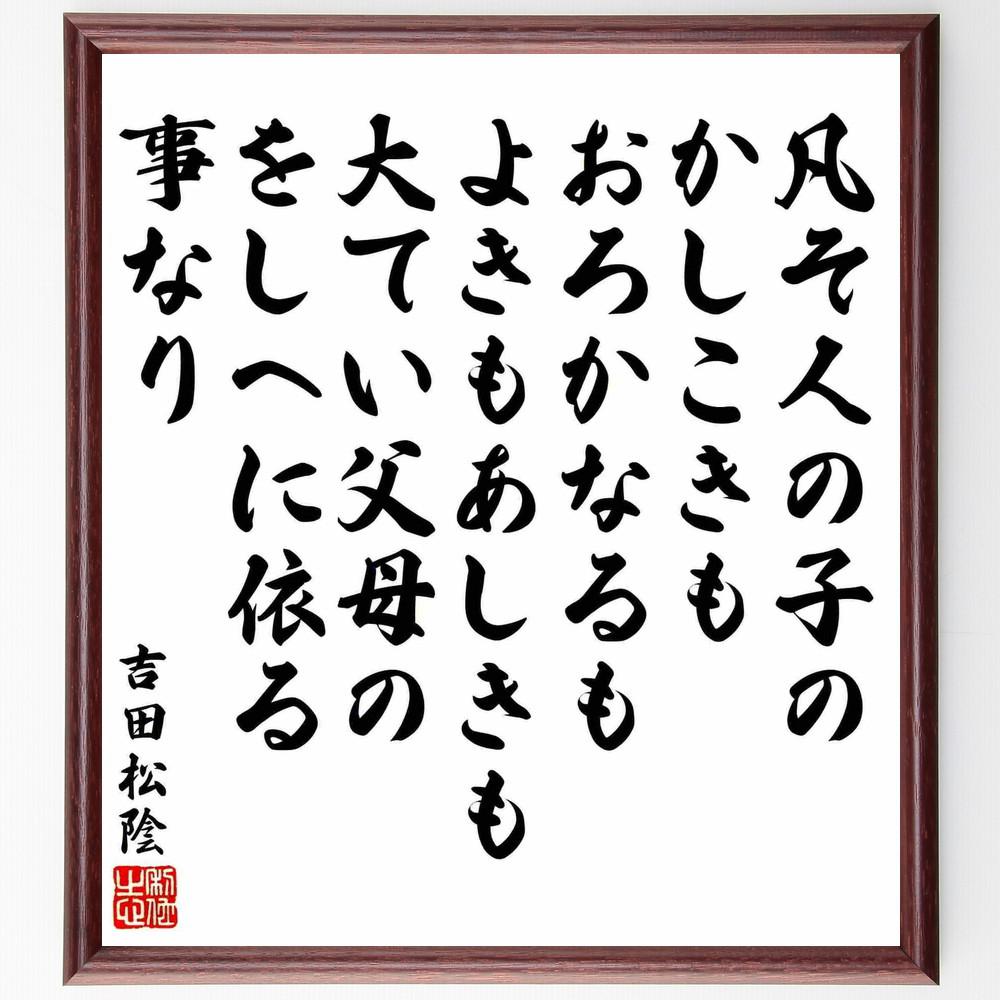 凡そ人の子の
かしこきも
おろかなるも
よきもあしきも
大てい父母の
をしへに依る
事なり
吉田松陰